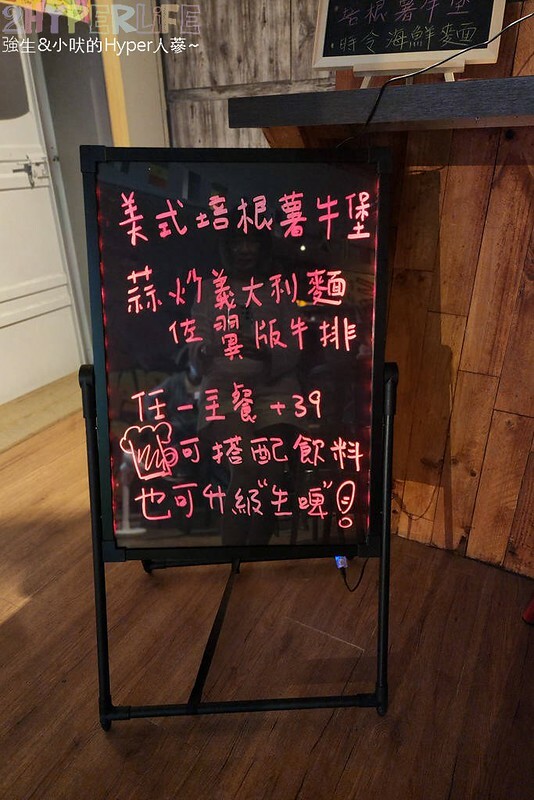 2HYPERLIFE
強生&小吠的Hyper人蔘~
培根薯牛堡
時令海鮮麵
美式培根薯牛堡
蒜炒義大利麵
佐翼版牛排
任一主餐+39
可搭配飲料
也可升級"生啤"!